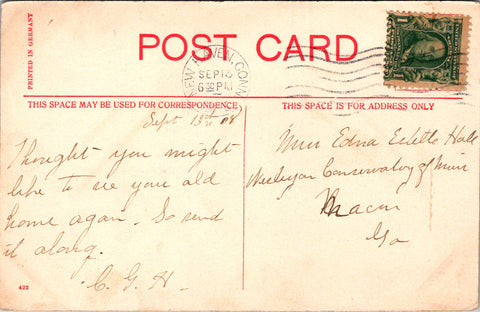 PRINTED IN GERMANY
POST CARD
NEW HAVEN, CONN.
SEP 13
6 30 PM
1 1
THIS SPACE MAY BE USED FOR CORRESPONDENCE
THIS SPACE IS FOR ADDRESS ONLY
Sept 13th 08
Thought you might
like to see your old
home again. So send
it along.
C. G. H.
Miss Edna Estelle Hall
Wesleyan Conservatory of Music
Macon
Ga
422